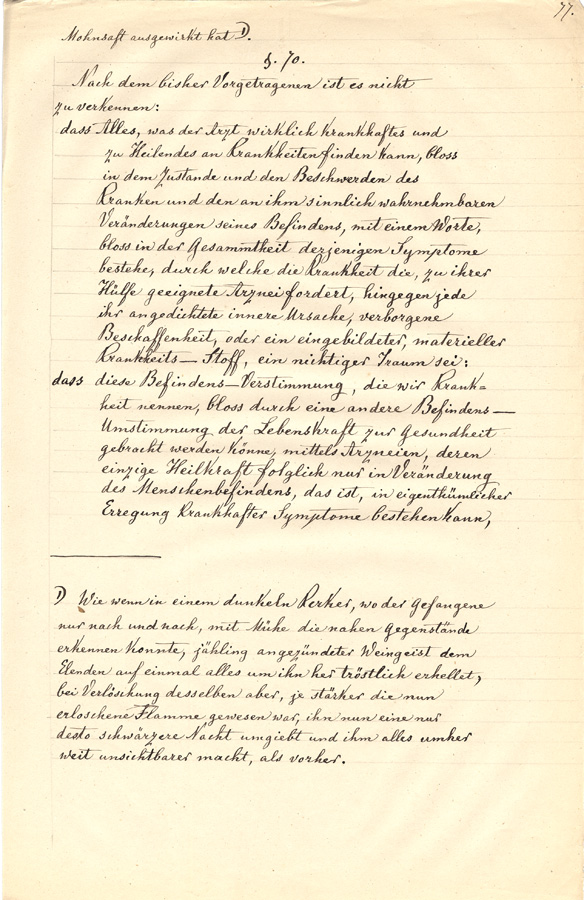 77.
Mohnsaft ausgewirkt hat 1).
§. 70.
Nach dem bisher Vorgetragenen ist es nicht
zu verkennen:
dass Alles, was der Arzt wirklich Krankhaftes und
zu Heilendes an Krankheiten finden kann, bloss
in dem Zustande und den Beschwerden des
Kranken und den an ihm sinnlich wahrnehmbaren
Veränderungen seines Befindens, mit einem Worte,
bloss in der Gesammtheit derjenigen Symptome
bestehe, durch welche die Krankheit die, zu ihrer
Hülfe geeignete Arznei fordert, hingegen jede
ihr angedichtete innere Ursache, verborgene
Beschaffenheit, oder ein eingebildeter, materieller
Krankheits-Stoff, ein nichtiger Traum sei:
dass diese Befindens-Verstimmung, die wir Krank=
heit nennen, bloss durch eine andere Befindens-
Umstimmung der Lebenskraft zur Gesundheit
gebracht werden könne, mittels Arzneien, deren
einzige Heilkraft folglich nur in Veränderung
des Menschenbefindens, das ist, in eigenthümlicher
Erregung krankhafter Symptome bestehen kann,
1) Wie wenn in einem dunkeln Kerker, wo der Gefangene
nur nach und nach, mit Mühe die nahen Gegenstände
erkennen konnte, jähling angezündeter Weingeist dem
Elenden auf einmal alles um ihn her tröstlich erhellet,
bei Verlöschung desselben aber, je stärker die nun
erloschene Flamme gewesen war, ihn nun eine nur
desto schwärzere Nacht umgiebt und ihm alles umher
weit unsichtbarer macht, als vorher.